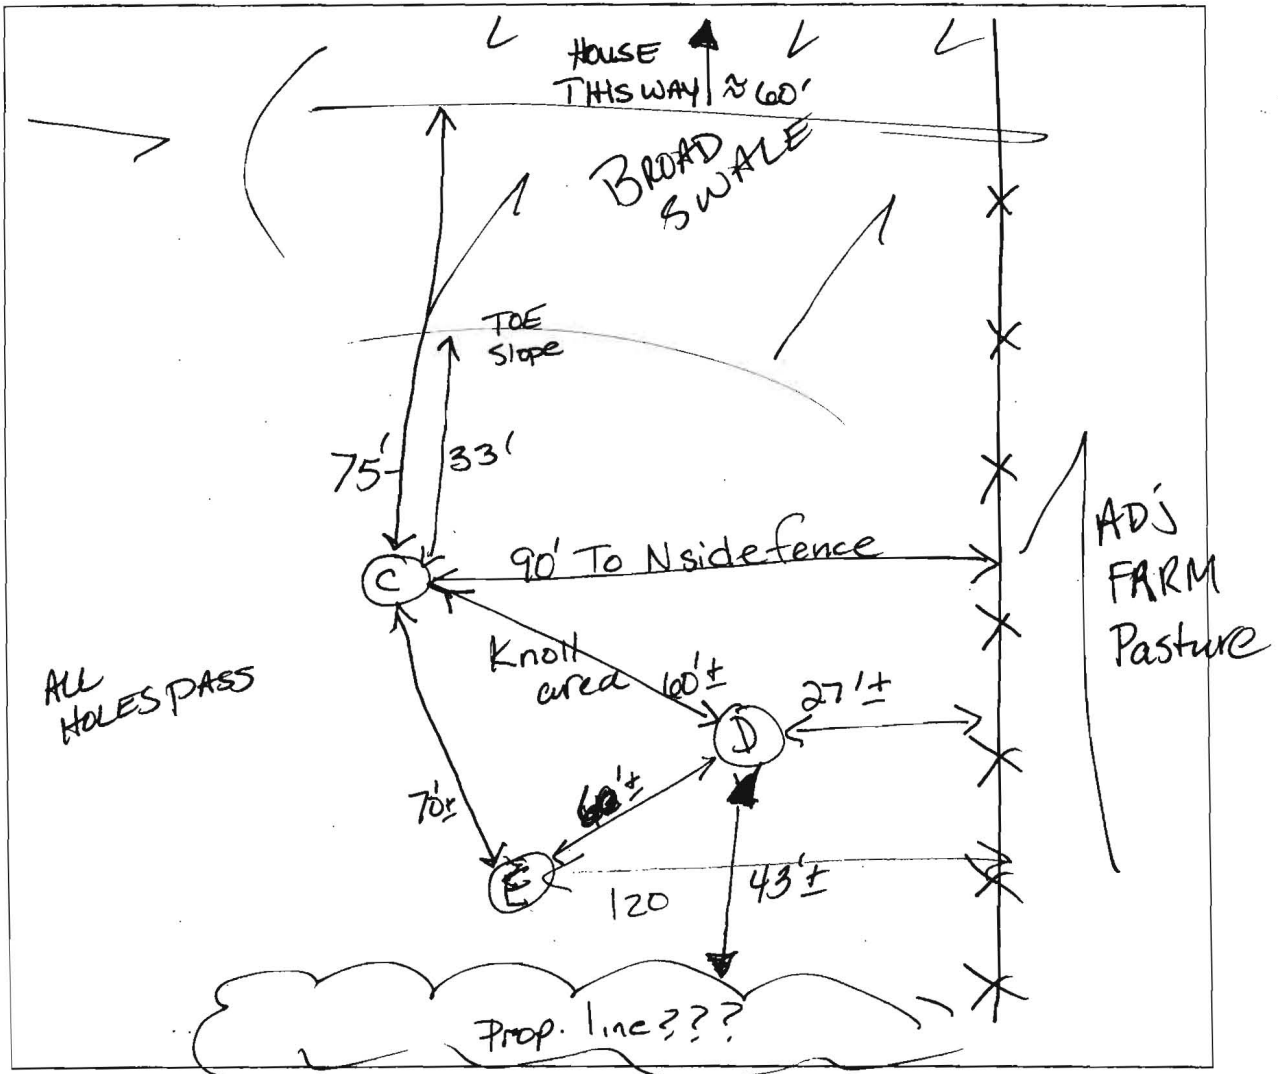 HOUSE
THIS WAY ≈ 60'
BROAD
SWALE
TOE
Slope
75'
33'
90' To N side fence
C
ADJ
FARM
Pasture
Knoll
area
60'±
27'±
ALL
HOLES PASS
D
70'±
E
120
43'±
Prop. line???